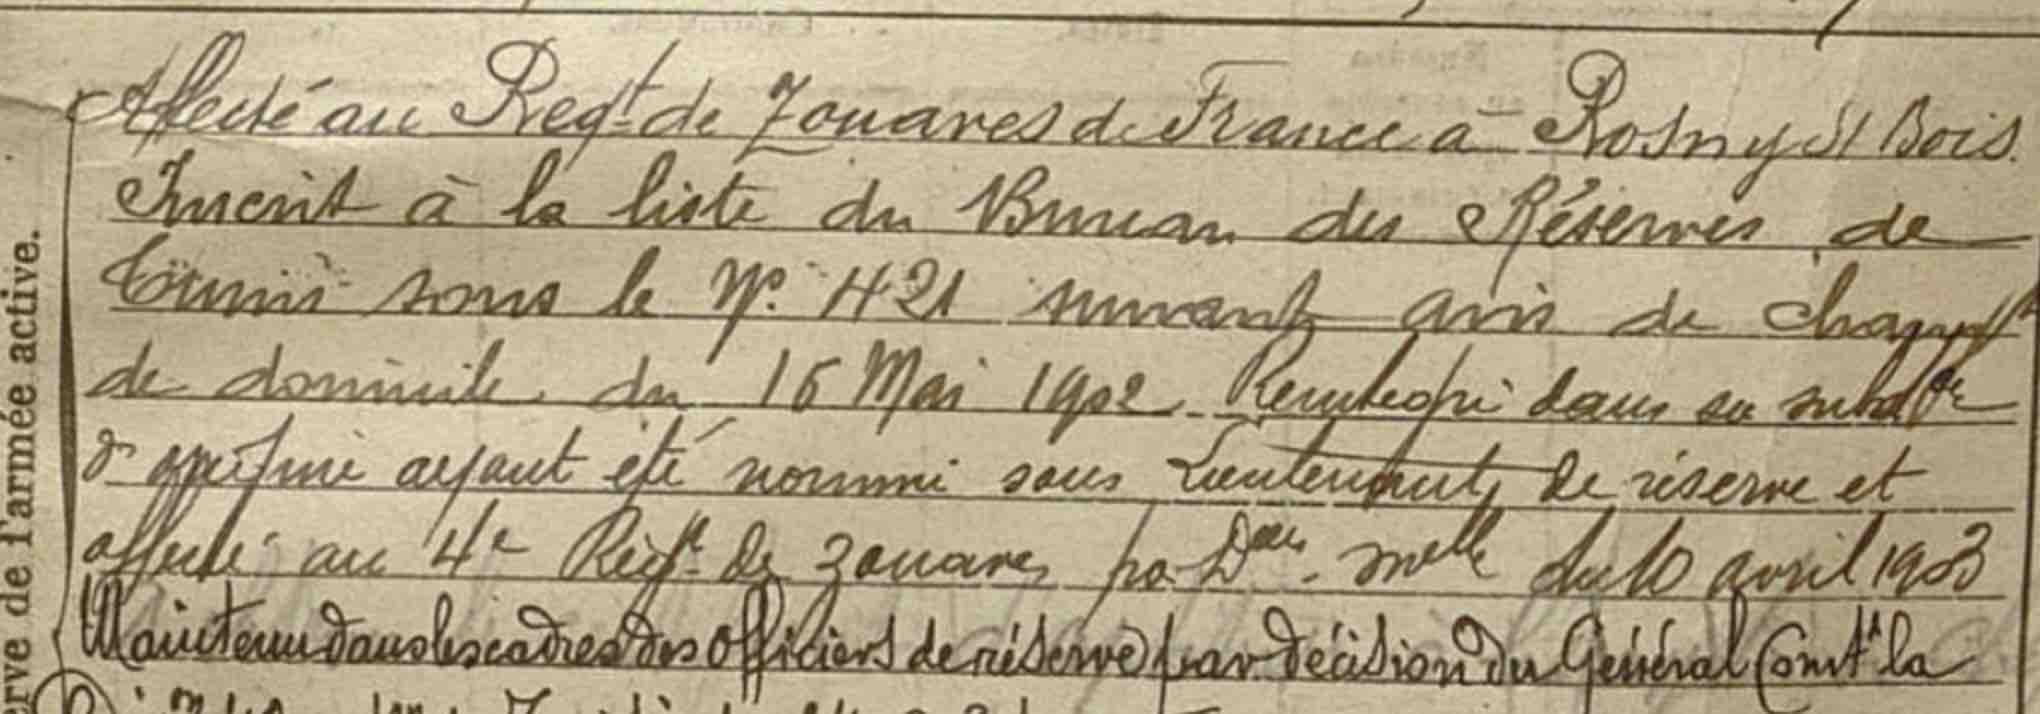 Affecté au Regt de Zouaves de France à Rosny s/ Bois.
Inscrit à la liste du Bureau des Réserves de
Tunis sous le N°. 421 suivant avis de changt
de domicile du 16 Mai 1902. Réintégré dans sa subdon
d'origine ayant été nommé sous Lieutenant de réserve et
affecté au 4e Régt de Zouaves par Don. melle du 10 avril 1903
Maintenu dans les cadres des Officiers de réserve par décision du Général Comt la
erve de l'armée active.